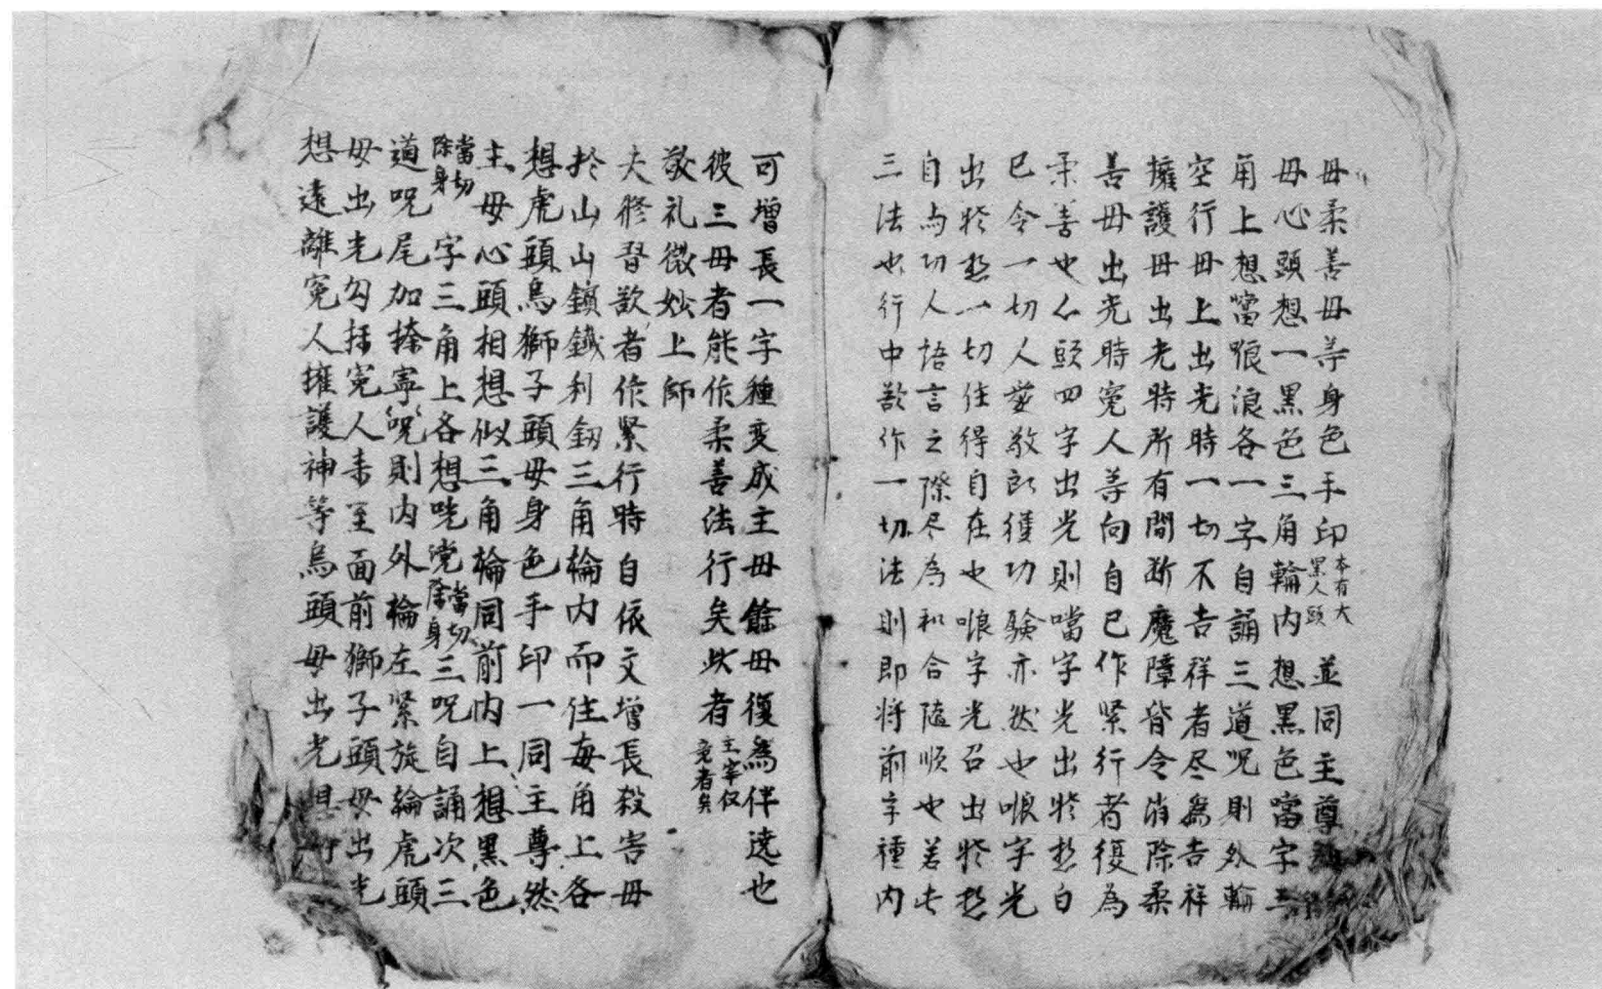 毋柔善毋等身色手印本有大黑人頭並同主尊
毋心頭想一黑色三角輪内想黑色噹字三
角上想噹哏浪各一字自誦三道呪則外輪
空行毋上出光時一切不吉祥者尽為吉祥
擁護毋出光時所有間断魔障皆令消除柔
善毋出光時寃人等向自己作緊行者復為
柔善也心頭四字出光則噹字光出扵愁白
已令一切人發敬即獲功驗亦然也哏字光
出扵愁一切住得自在也哏字光召出扵愁
自与功人語言之際尽為和合随順也若此
三法也行中欲作一切法則即将前字種内
可增長一字種变成主毋餘毋復為伴遶也
彼三毋者能作柔善法行矣此者主宰仅竟者矣
敬礼微妙上師
夫修習欲者作緊行時自依文增長殺害毋
扵山山鑛鐵利釰三角輪内而住每角上各
想虎頭烏獅子頭毋身色手印一同主尊然
主毋心頭相想似三角輪同前内上想黒色
當切除身字三角上各想吽党當切除身三呪自誦次三
道呪尾加捺寧呪則内外輪左緊旋輪虎頭
毋出光勾抂寃人来至面前獅子頭毋出光
想遠離寃人擁護神等烏頭毋出光想